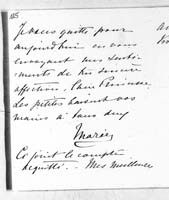 185
Je vous quitte pour
aujourd'hui en vous
envoyant mes senti-
ments de très sincère
affection, chère Princesse.
Les petites baisent vos
mains à tous deux
Marie
Ci joint le compte
acquitté. - Mes meilleurs